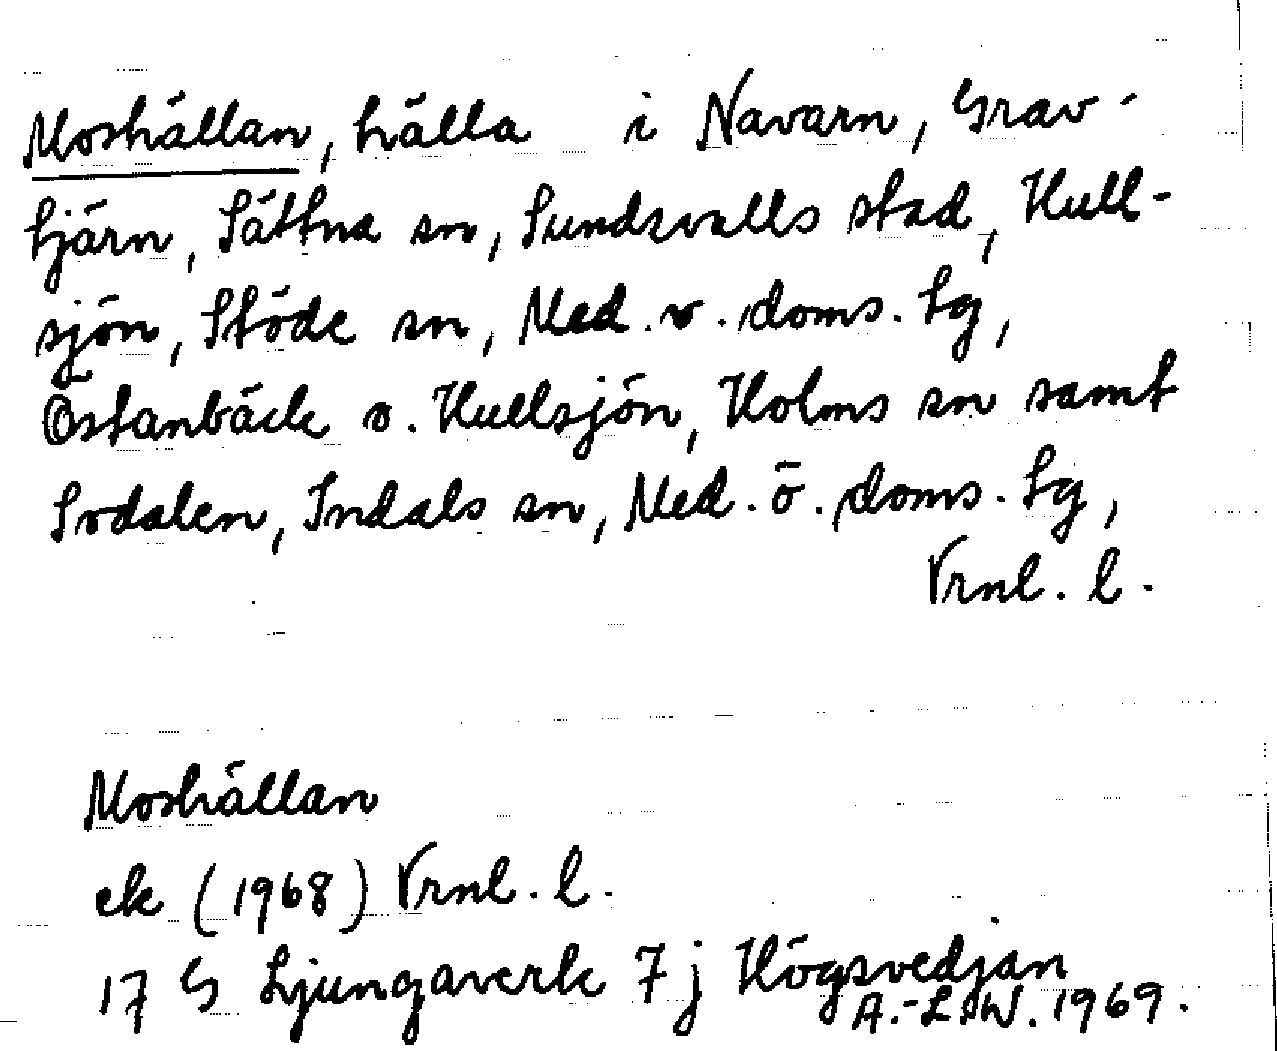 Moshällan, hälla i Navarn, Grav-
tjärn, Sättna sn, Sundsvalls stad, Hull-
sjön, Stöde sn, Med. v. doms. tg,
Östanbäck o. Hullsjön, Holms sn samt
Sodalen, Indals sn, Med. ö. doms. tg,
Vrnl. l.
Moshällan
ek (1968) Vrnl. l.
17 G Ljungaverk 7 j Högsvedjan
A.-L.W. 1969.